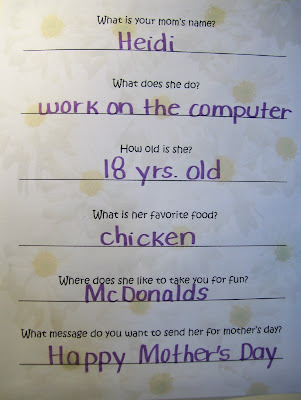 What is your mom's name?
Heidi
What does she do?
work on the computer
How old is she?
18 yrs. old
What is her favorite food?
chicken
Where does she like to take you for fun?
McDonalds
What message do you want to send her for mother's day?
Happy Mother's Day